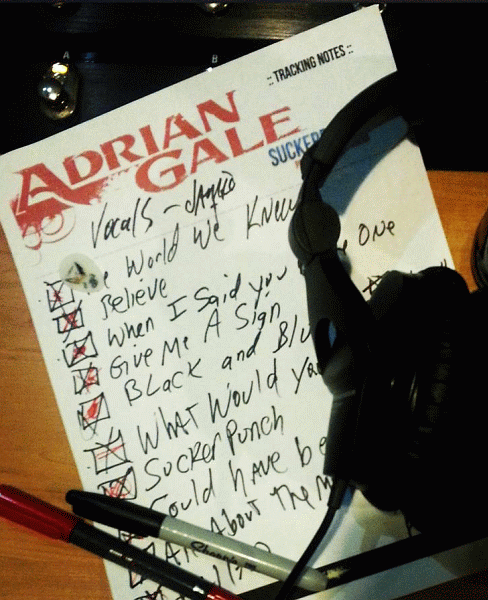 :: TRACKING NOTES ::
ADRIAN
GALE
SUCKER
Vocals -
World We Knew
Believe
When I Said You One
Give Me A Sign
Black and Blu
What Would You
SuckerPunch
Could have be
About The M
Sharpie